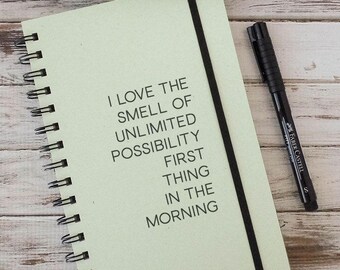 I LOVE THE
SMELL OF
UNLIMITED
POSSIBILITY
FIRST
THING
IN THE
MORNING
FABER-CASTELL
S